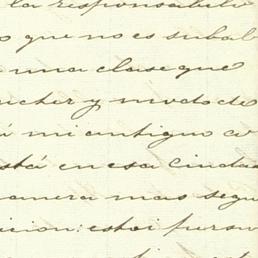 la responsabili
o que no es subal
a una clase que
ucher y modo de
á mi antiguo co
stá en esa Ciuda
anera mas segu
icion: estoi persu